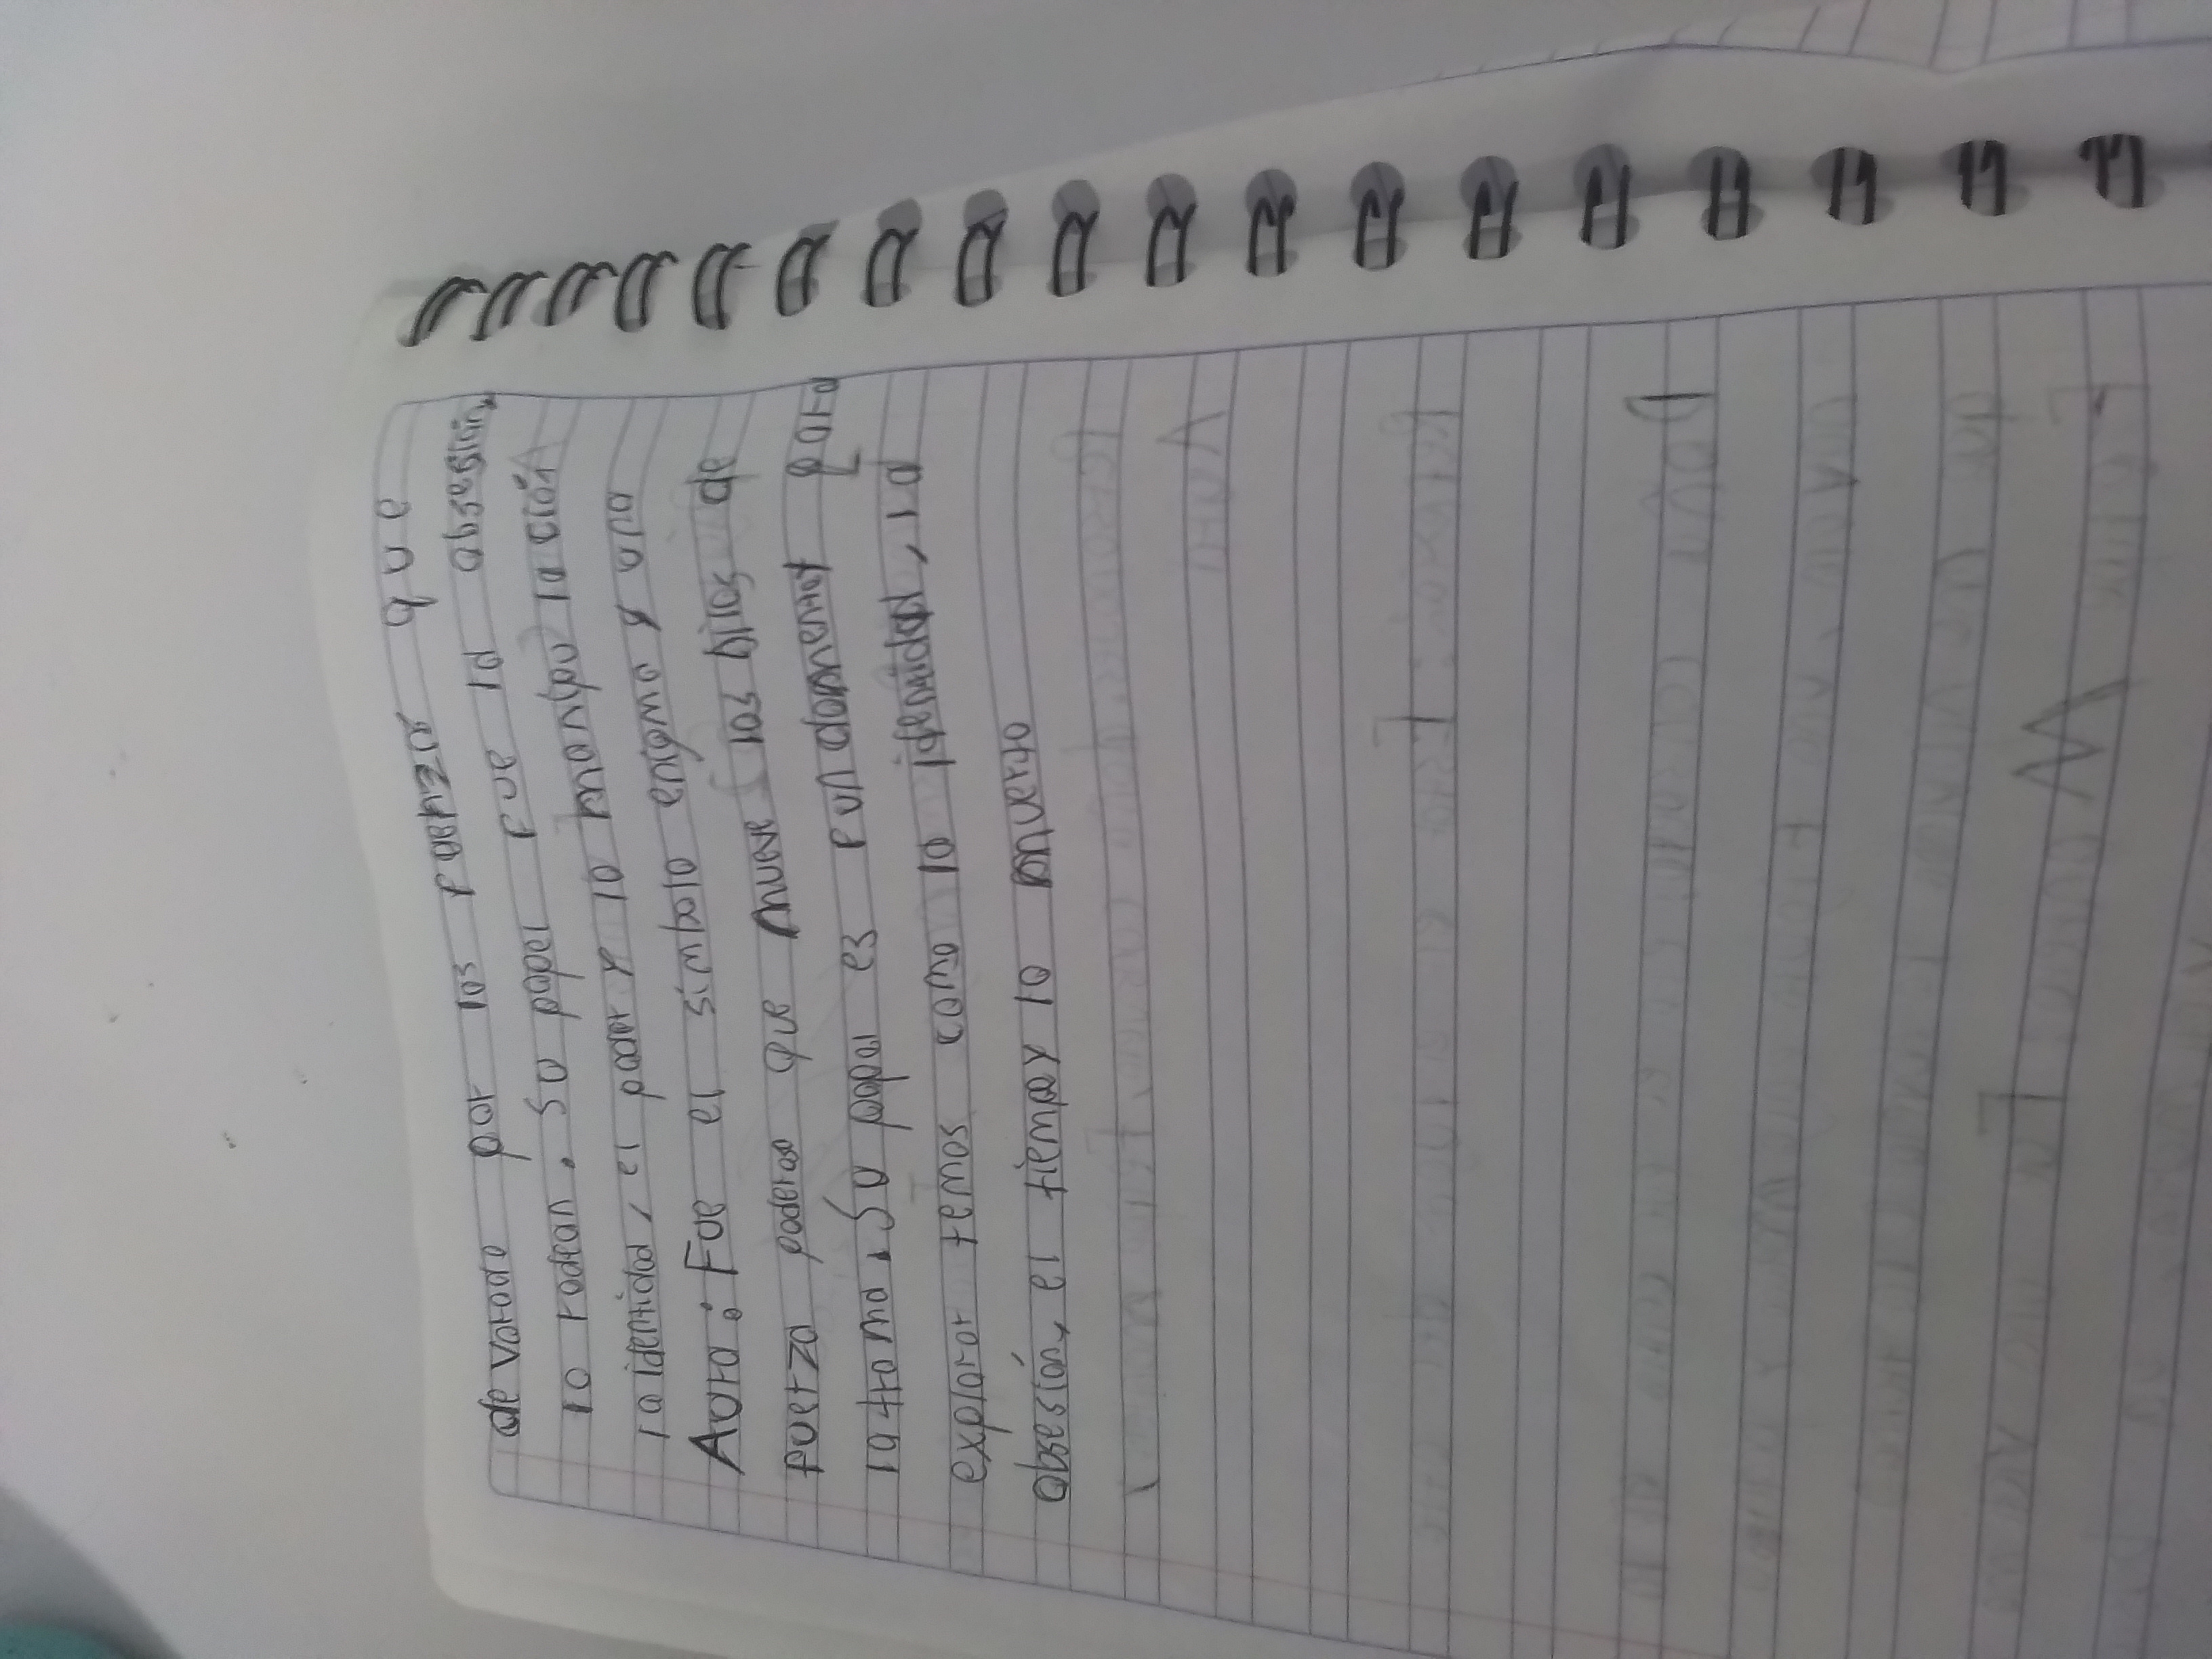 devorado por las fuerzas que
lo rodean. Su papel fue la obsesión,
la identidad, el poder y la manipulación
Aura: Fue el símbolo enigma y una
fuerza poderosa que mueve los hilos de
la trama. Su papel es fundamental para
explorar temas como la identidad, la
obsesión, el tiempo y la muerte